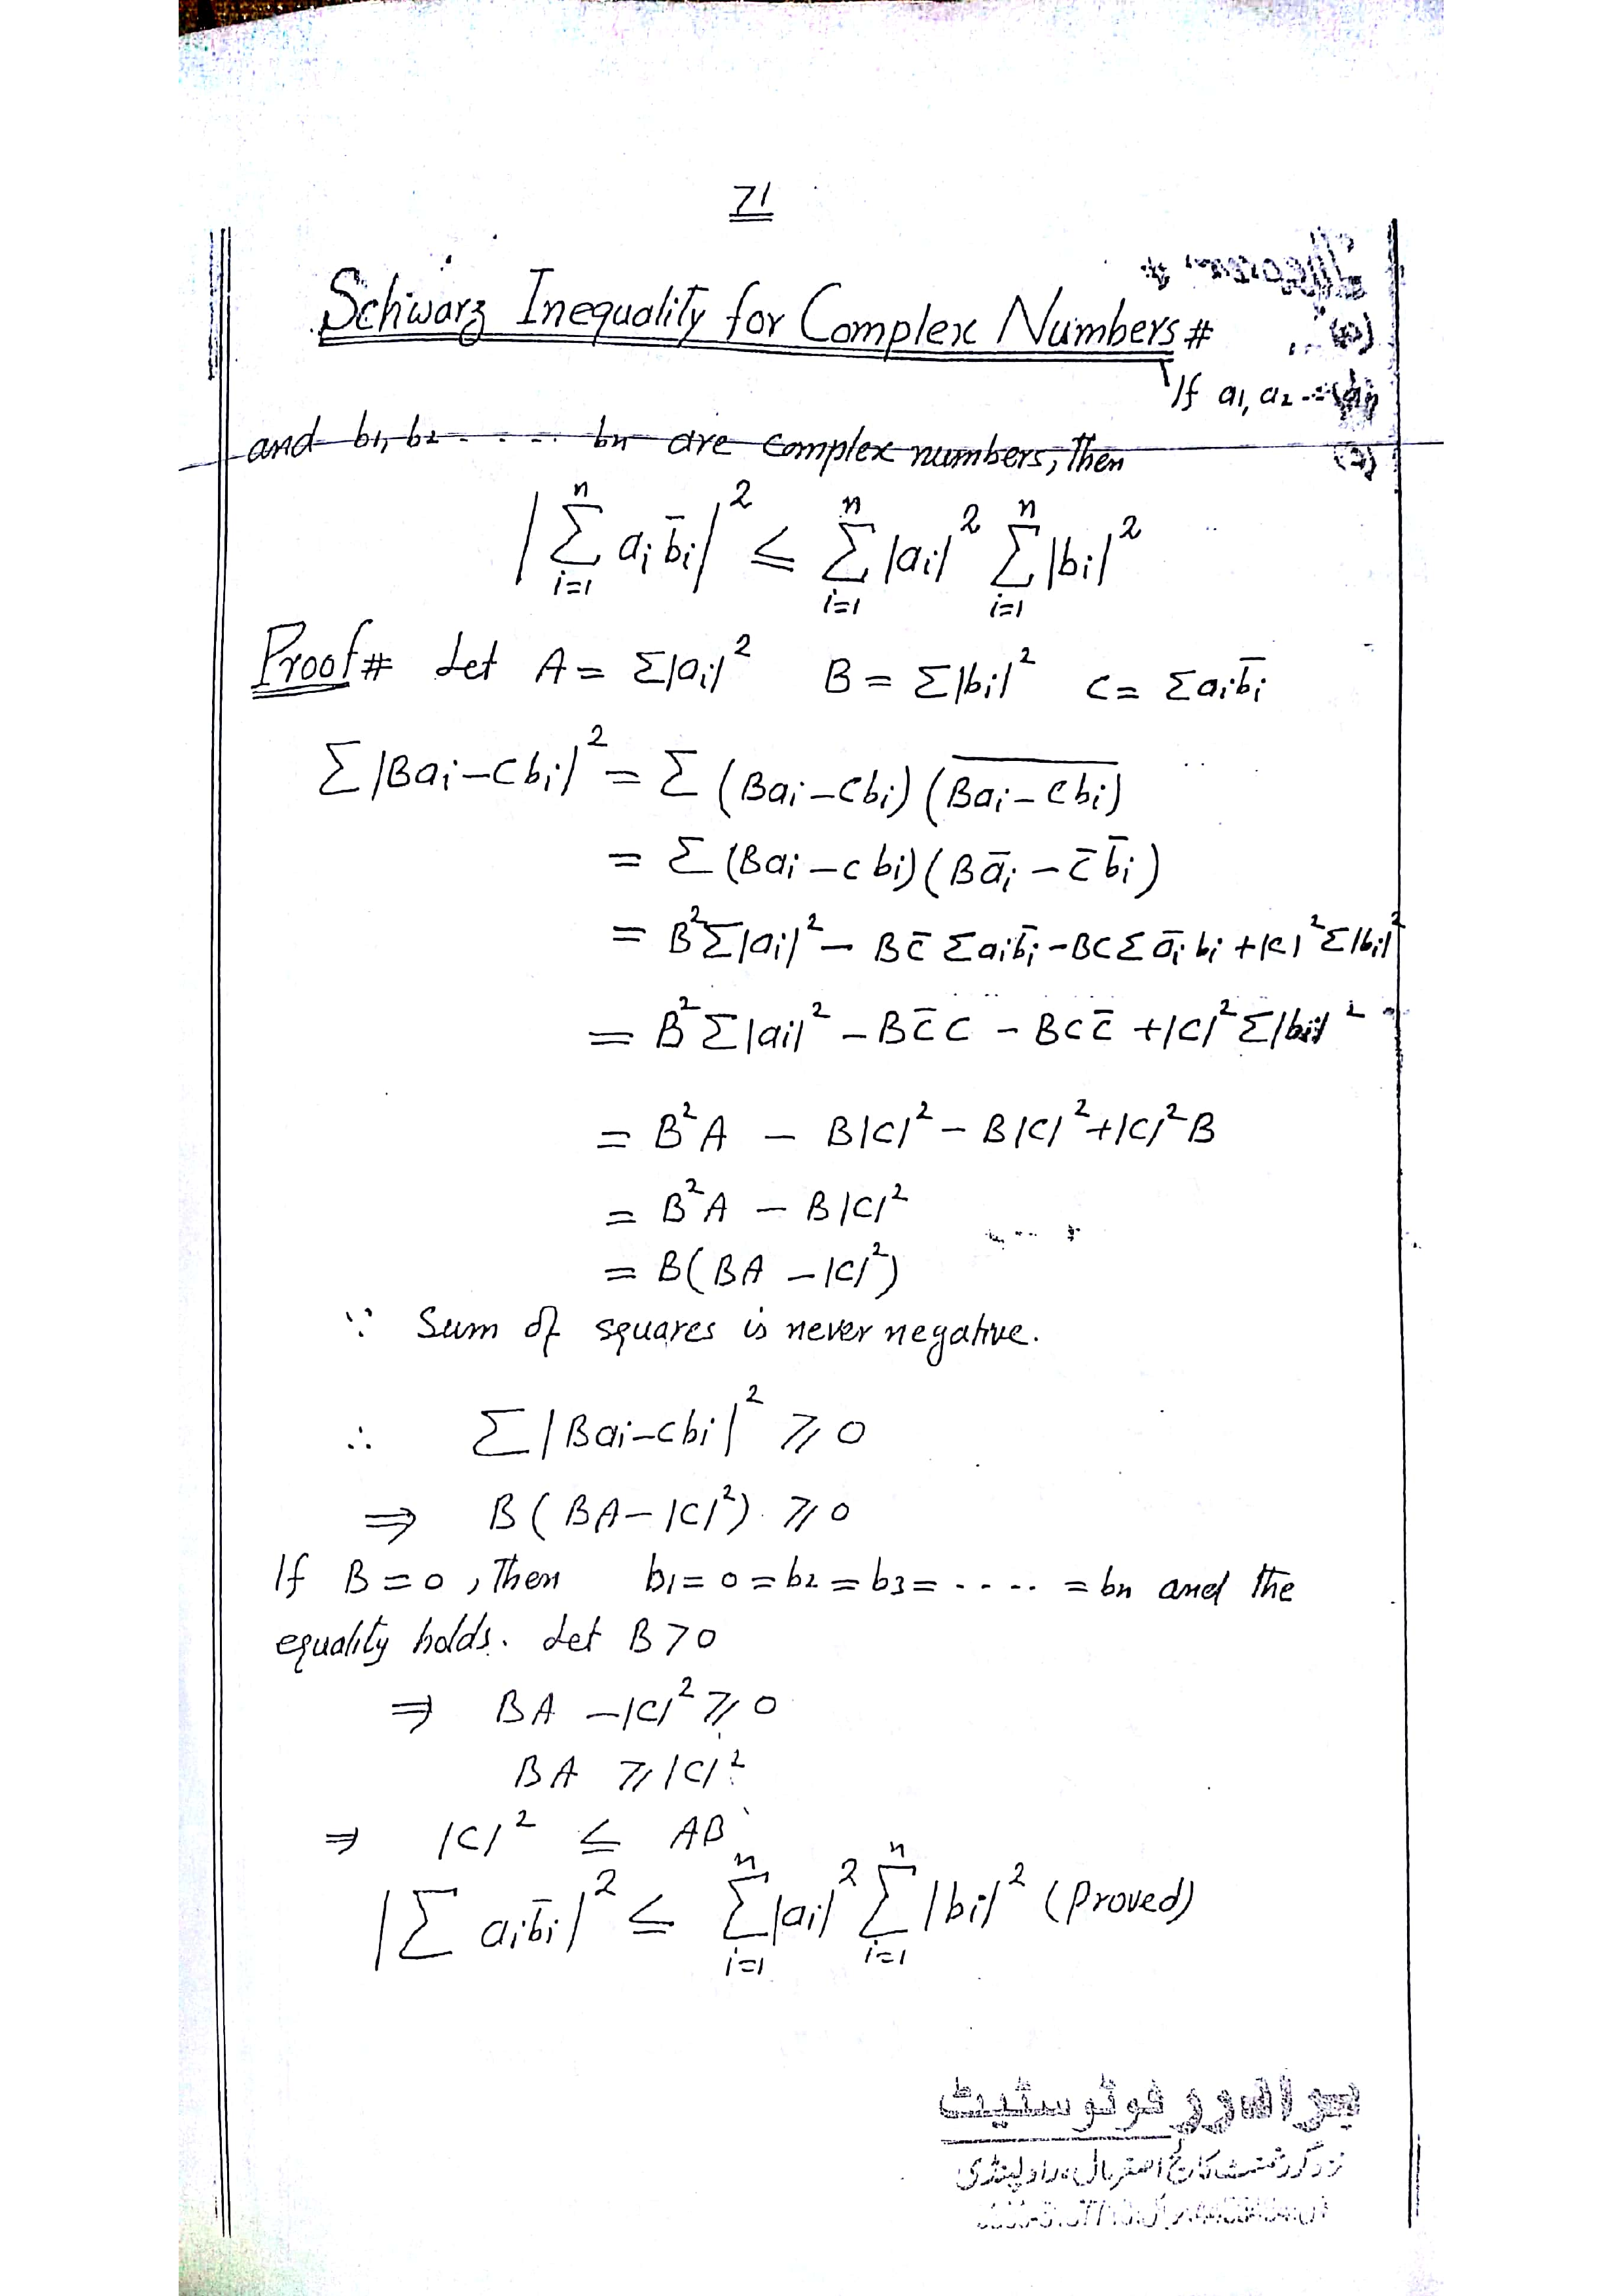 71
Schwarz Inequality for Complex Numbers #
If a1, a2 ---
and b1, b2 ..... bn are complex numbers, Then
|∑_{i=1}^{n} a_i b̄_i|² ≤ ∑_{i=1}^{n} |ai|² ∑_{i=1}^{n} |bi|²
Proof # Let A = Σ|ai|² B = Σ|bi|² C = Σai b̄i
Σ|Bai-Cbi|² = Σ (Bai-Cbi) (\overline{Bai-Cbi})
= Σ (Bai-cbi)(Bāi - c̄ b̄i)
= B²Σ|ai|² - Bc̄ Σai b̄i - BCΣ āi bi + |C|²Σ|bi|²
= B²Σ|ai|² - Bc̄C - BCc̄ + |C|²Σ|bi|²
= B²A - B|C|² - B|C|² + |C|²B
= B²A - B|C|²
= B(BA - |C|²)
∵ Sum of squares is never negative.
∴ Σ|Bai-cbi|² ⩾ 0
⇒ B(BA-|C|²) ⩾ 0
If B = 0, Then b1 = 0 = b2 = b3 = ..... = bn and the
equality holds. Let B > 0
⇒ BA - |C|² ⩾ 0
BA ⩾ |C|²
⇒ |C|² ≤ AB
|Σ ai b̄i|² ≤ ∑_{i=1}^{n} |ai|² ∑_{i=1}^{n} |bi|² (Proved)
فوٹوسٹیٹ